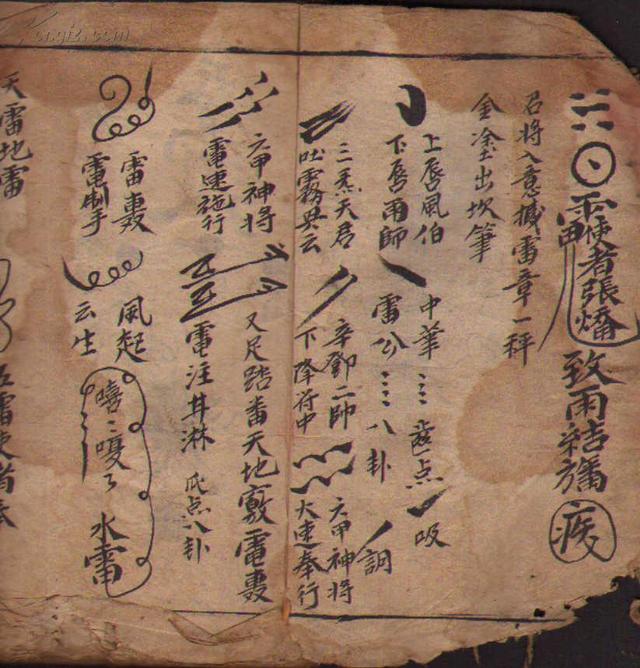 使者張燔致雨結旛
召將入意撼雷章一秤
金塗出坎筆
上唇風伯
下唇雨師
中華
齒点
吸
雷公
八卦
三炁天君
吐霧興云
辛鄧二帥
下降符中
六甲神將
大速奉行
六甲神將
雷速施行
又足踏番天地
電注其淋
八卦
雷轟
雷制手
風起
云生
水雷
天雷地雷
五雷使者